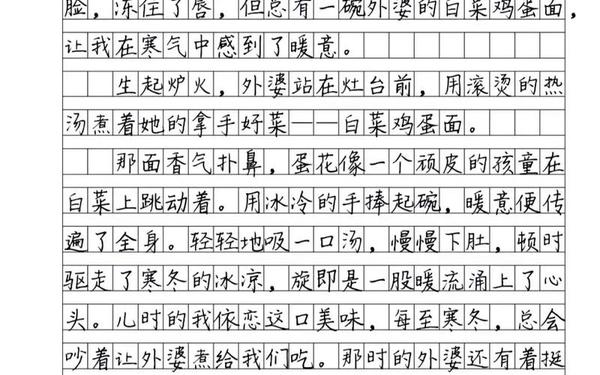 脸，冻住了唇，但总有一碗外婆的白菜鸡蛋面，
让我在寒气中感到了暖意。
生起炉火，外婆站在灶台前，用滚烫的热
汤煮着她的拿手好菜——白菜鸡蛋面。
那面香气扑鼻，蛋花像一个顽皮的孩童在
白菜上跳动着。用冰冷的手捧起碗，暖意便传
遍了全身。轻轻地吸一口汤，慢慢下肚，顿时
驱走了寒冬的冰凉，旋即是一股暖流涌上了心
头。儿时的我依恋这口美味，每至寒冬，总会
吵着让外婆煮给我们吃。那时的外婆还有着挺